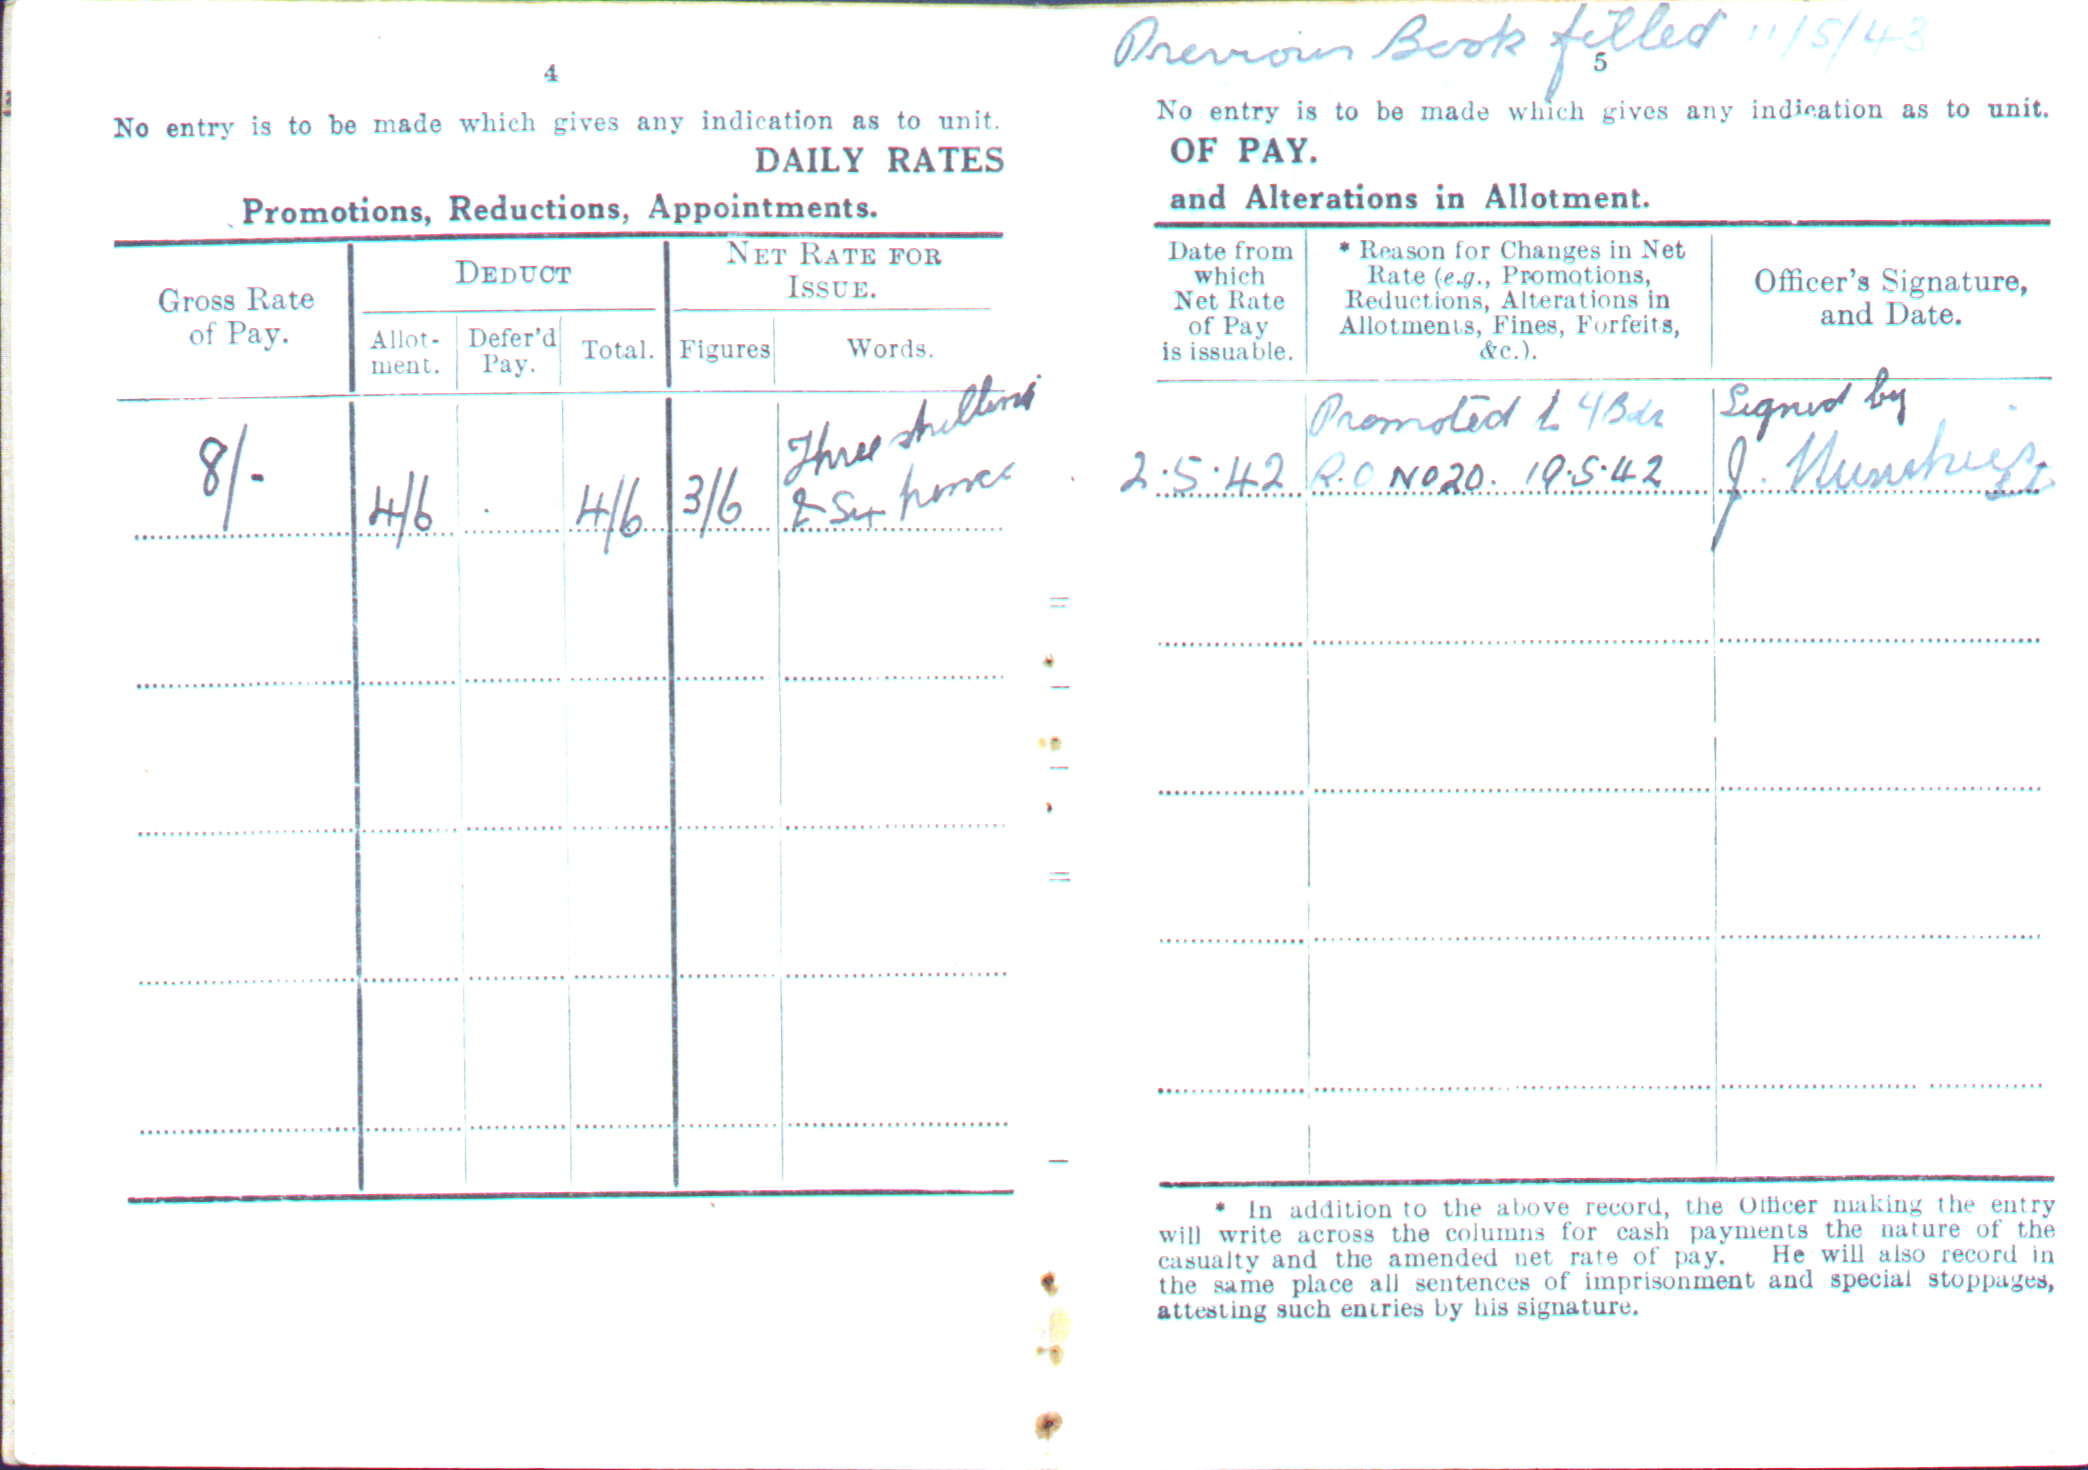 4
No entry is to be made which gives any indication as to unit.
DAILY RATES
Promotions, Reductions, Appointments.
Gross Rate
of Pay.
DEDUCT
Allot-
ment.
Defer'd
Pay.
Total.
NET RATE FOR
ISSUE.
Figures
Words.
8/-
4/6
4/6
3/6
Three shillings
& Six pence
Previous Book filled 11/5/43
5
No entry is to be made which gives any indication as to unit.
OF PAY.
and Alterations in Allotment.
Date from
which
Net Rate
of Pay
is issuable.
* Reason for Changes in Net
Rate (e.g., Promotions,
Reductions, Alterations in
Allotments, Fines, Forfeits,
&c.).
Officer's Signature,
and Date.
Promoted to Bdr
2.5.42
R.O No 20. 19.5.42
Signed by
J. Humphries Lt
* In addition to the above record, the Officer making the entry
will write across the columns for cash payments the nature of the
casualty and the amended net rate of pay. He will also record in
the same place all sentences of imprisonment and special stoppages,
attesting such entries by his signature.